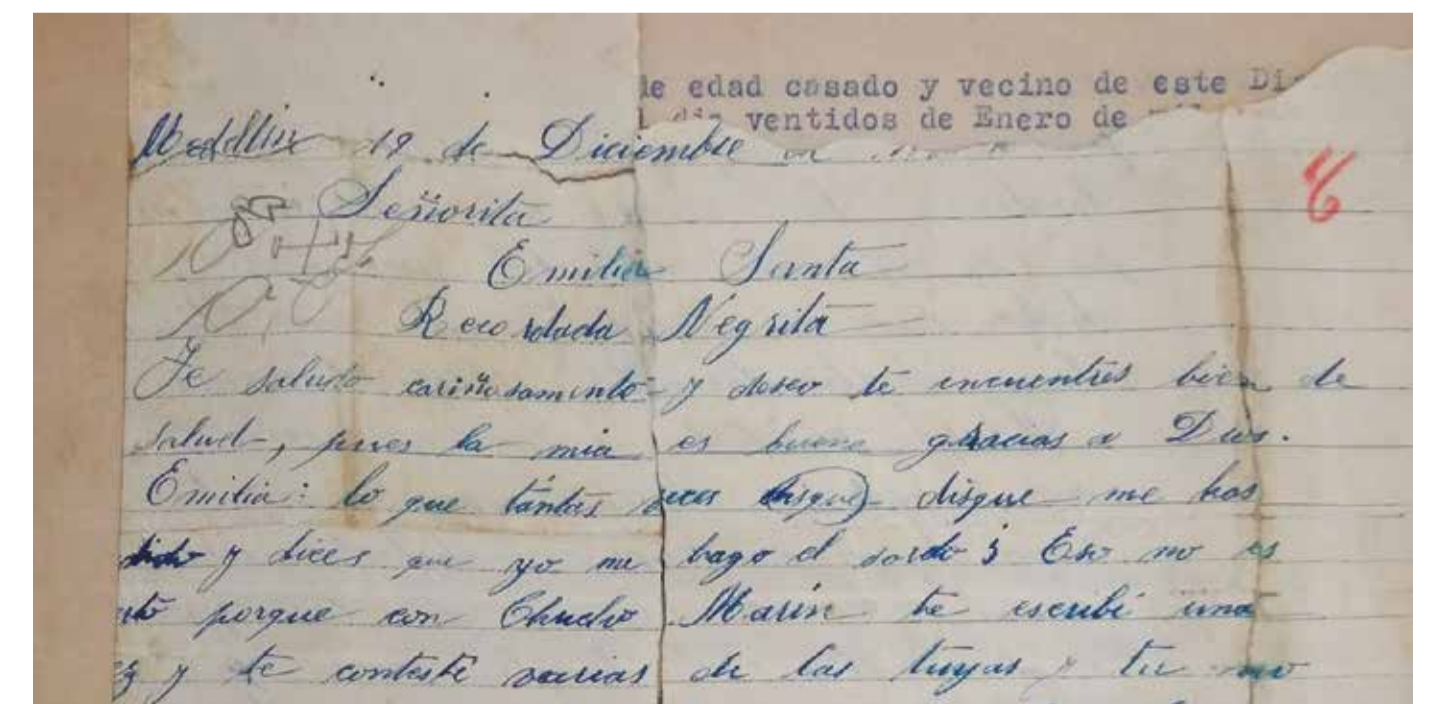 de edad casado y vecino de este Dis
dia ventidos de Enero de
Medellin 19 de Diciembre
6
Señorita
Emilia Santa
Recordada Negrita
Te saludo cariñosamente y deseo te encuentres bien de
salud, pues la mia es buena gracias a Dios.
Emilia: lo que tántas veces disque disque me has
dido y dices que yo me hago el sordo; Eso no es
to porque con Chucho Marin te escribí una
z y te contesté varias de las tuyas y tu no